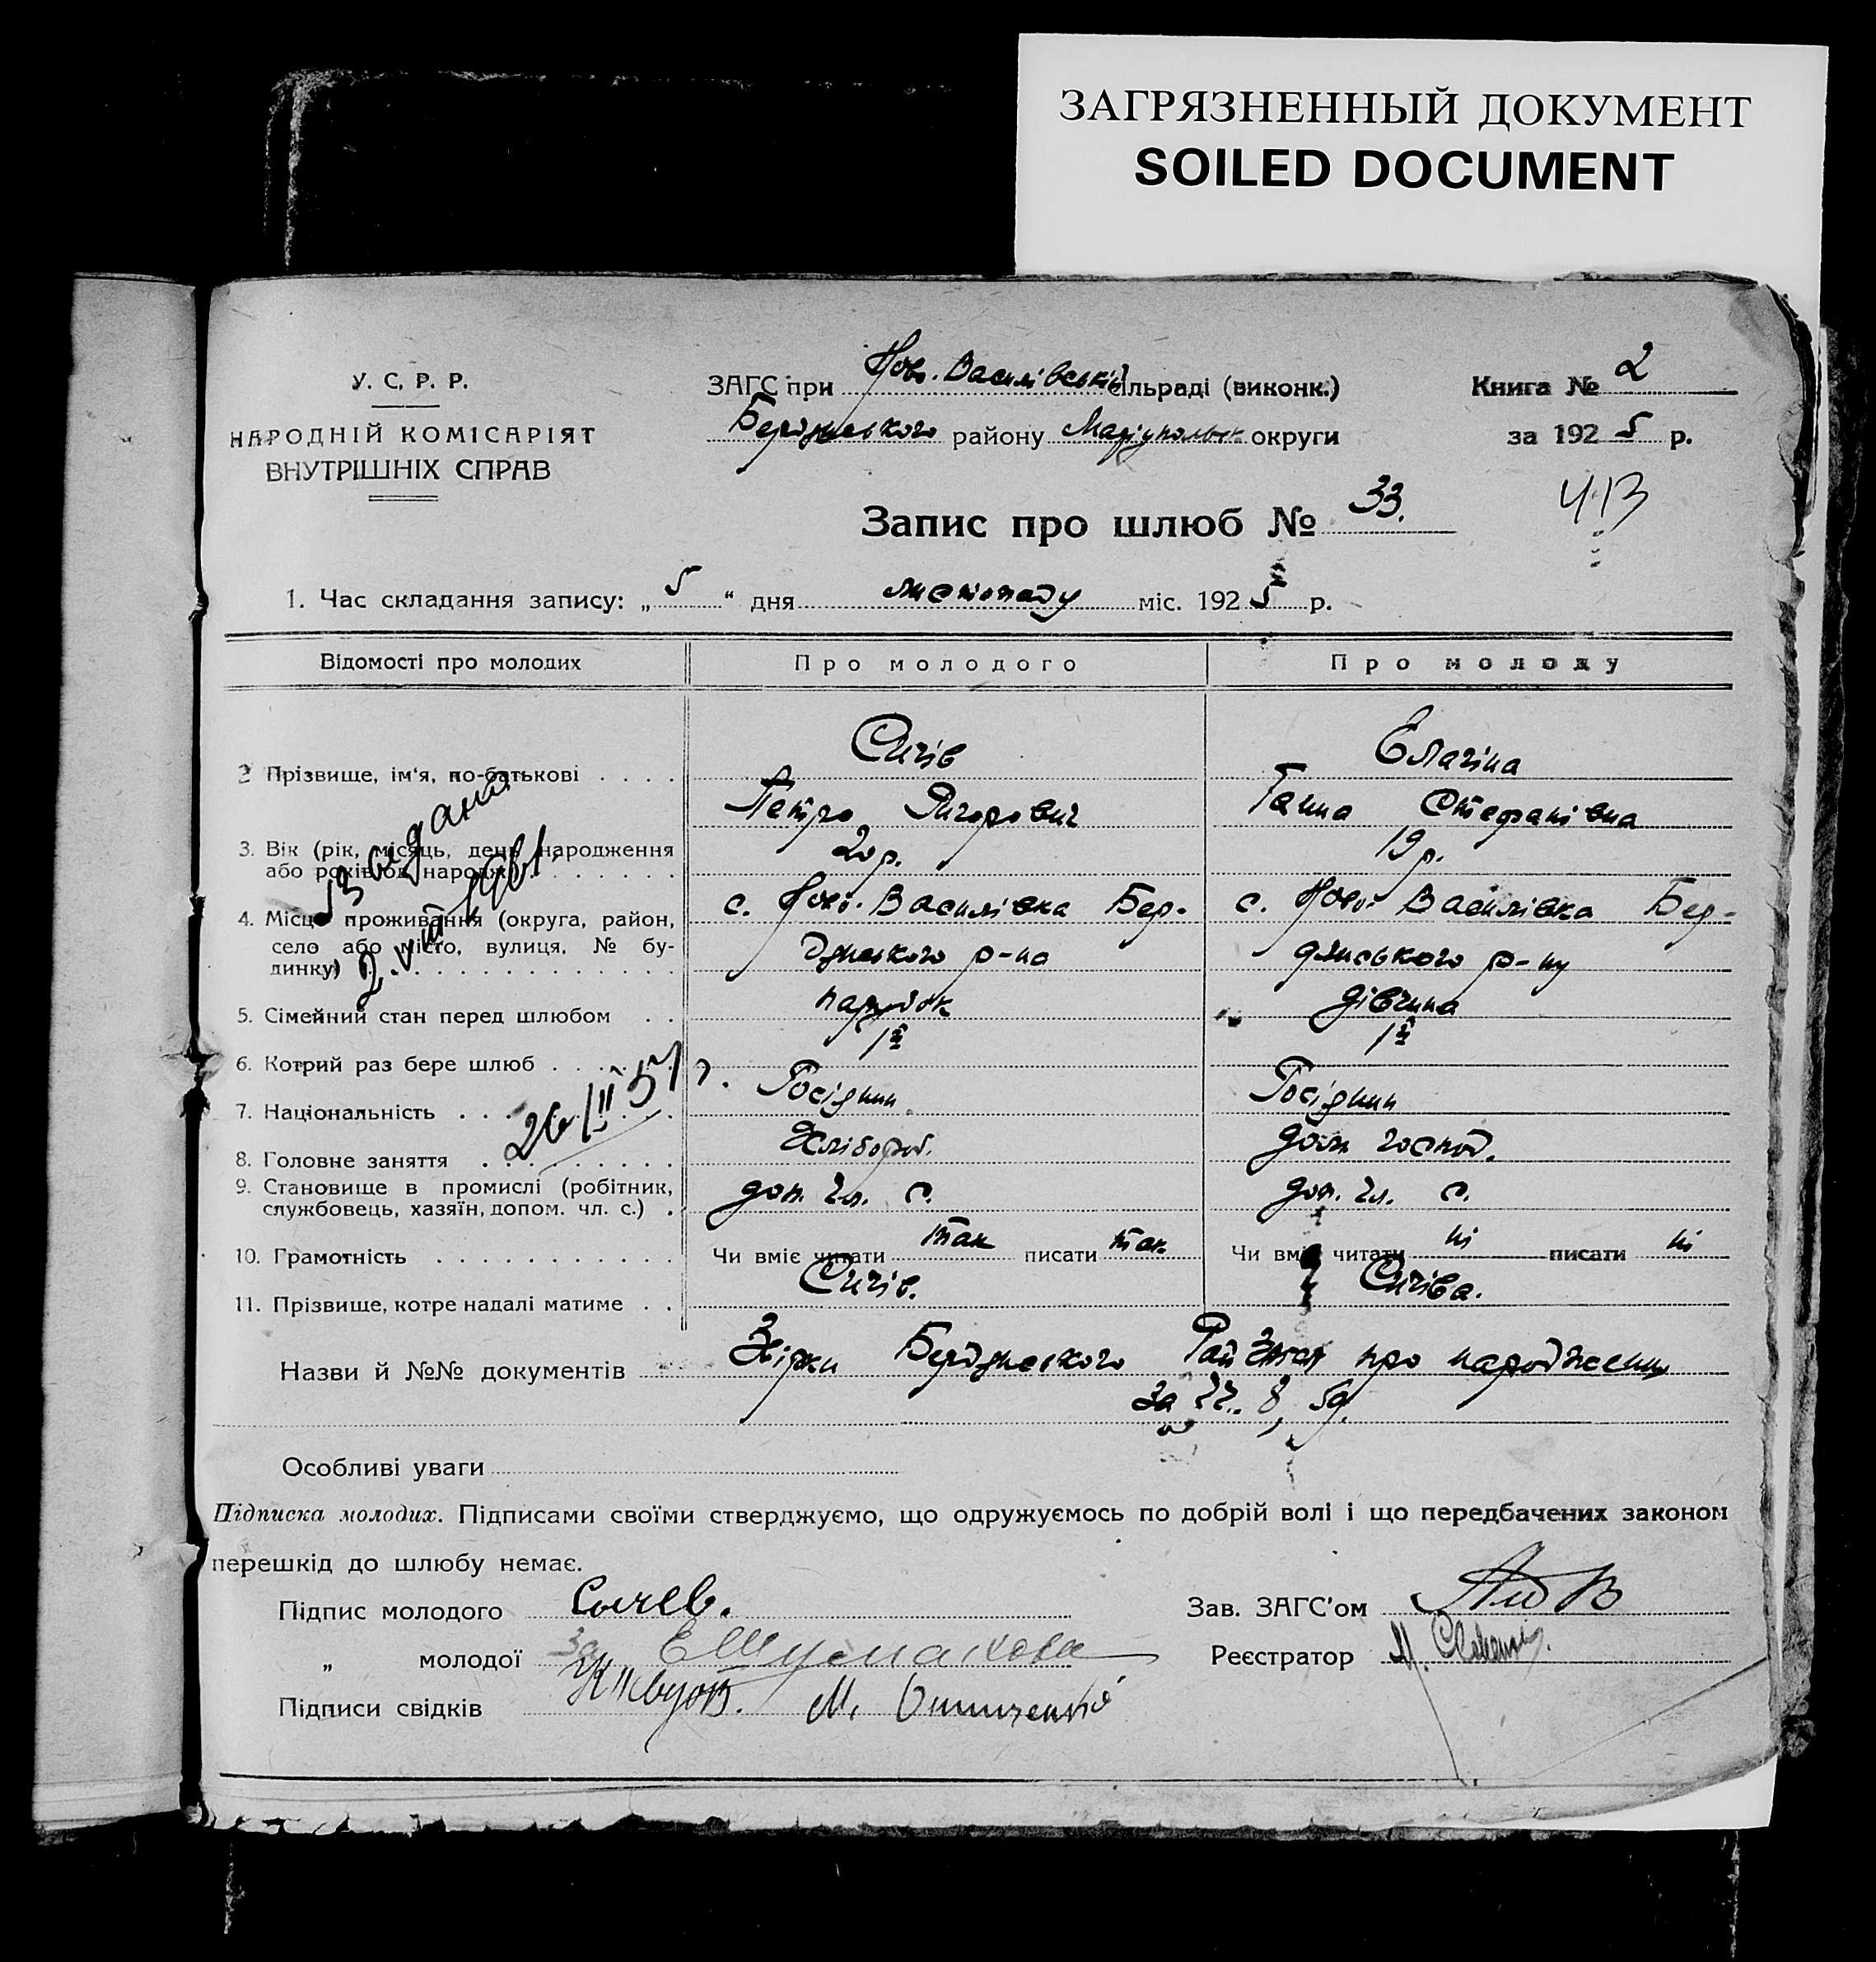 ЗАГРЯЗНЕННЫЙ ДОКУМЕНТ
SOILED DOCUMENT
У. С. Р. Р.
НАРОДНІЙ КОМІСАРІЯТ
ВНУТРІШНІХ СПРАВ
ЗАГС при Ново-Василівській сільраді (виконк.)
Бердянського району Маріупольськ округи
Книга № 2
за 1925 р.
413
Запис про шлюб № 33.
1. Час складання запису: „5“ дня листопаду міс. 1925 р.
Відомості про молодих Про молодого Про молоду
2 Прізвище, ім'я, по-батькові . . . . Сичів Елагіна
Петро Ягорович Ганна Стефанівна
3. Вік (рік, місяць, день народження
або років од народж.) 20 р. 19 р.
4. Місце проживання (округа, район, с. Ново-Василівка Бер- с. Ново Василівка Бер-
село або місто, вулиця, № бу-
динку) дянського р-на дянського р-ну
5. Сімейний стан перед шлюбом . . парубок дівчина
6. Котрий раз бере шлюб . . . 1й 1й
26/II 57 г.
7. Національність Росіянин Росіянин
8. Головне заняття Хлібороб. дом. господ.
9. Становище в промислі (робітник,
службовець, хазяїн, допом. чл. с.) . доп. чл. с. доп. чл. с.
10. Грамотність Чи вміє читати так писати так Чи вміє читати ні писати ні
11. Прізвище, котре надалі матиме . . Сичів. Сичіва.
Назви й №№ документів Звірки Бердянського Рай Загса про народження
за
Особливі уваги
Підписка молодих. Підписами своїми стверджуємо, що одружуємось по добрій волі і що передбачених законом
перешкід до шлюбу немає.
Підпис молодого Сычев.
Зав. ЗАГС'ом
„ молодої За Е Шумакова
Реєстратор М.
Підписи свідків М. Онищенко